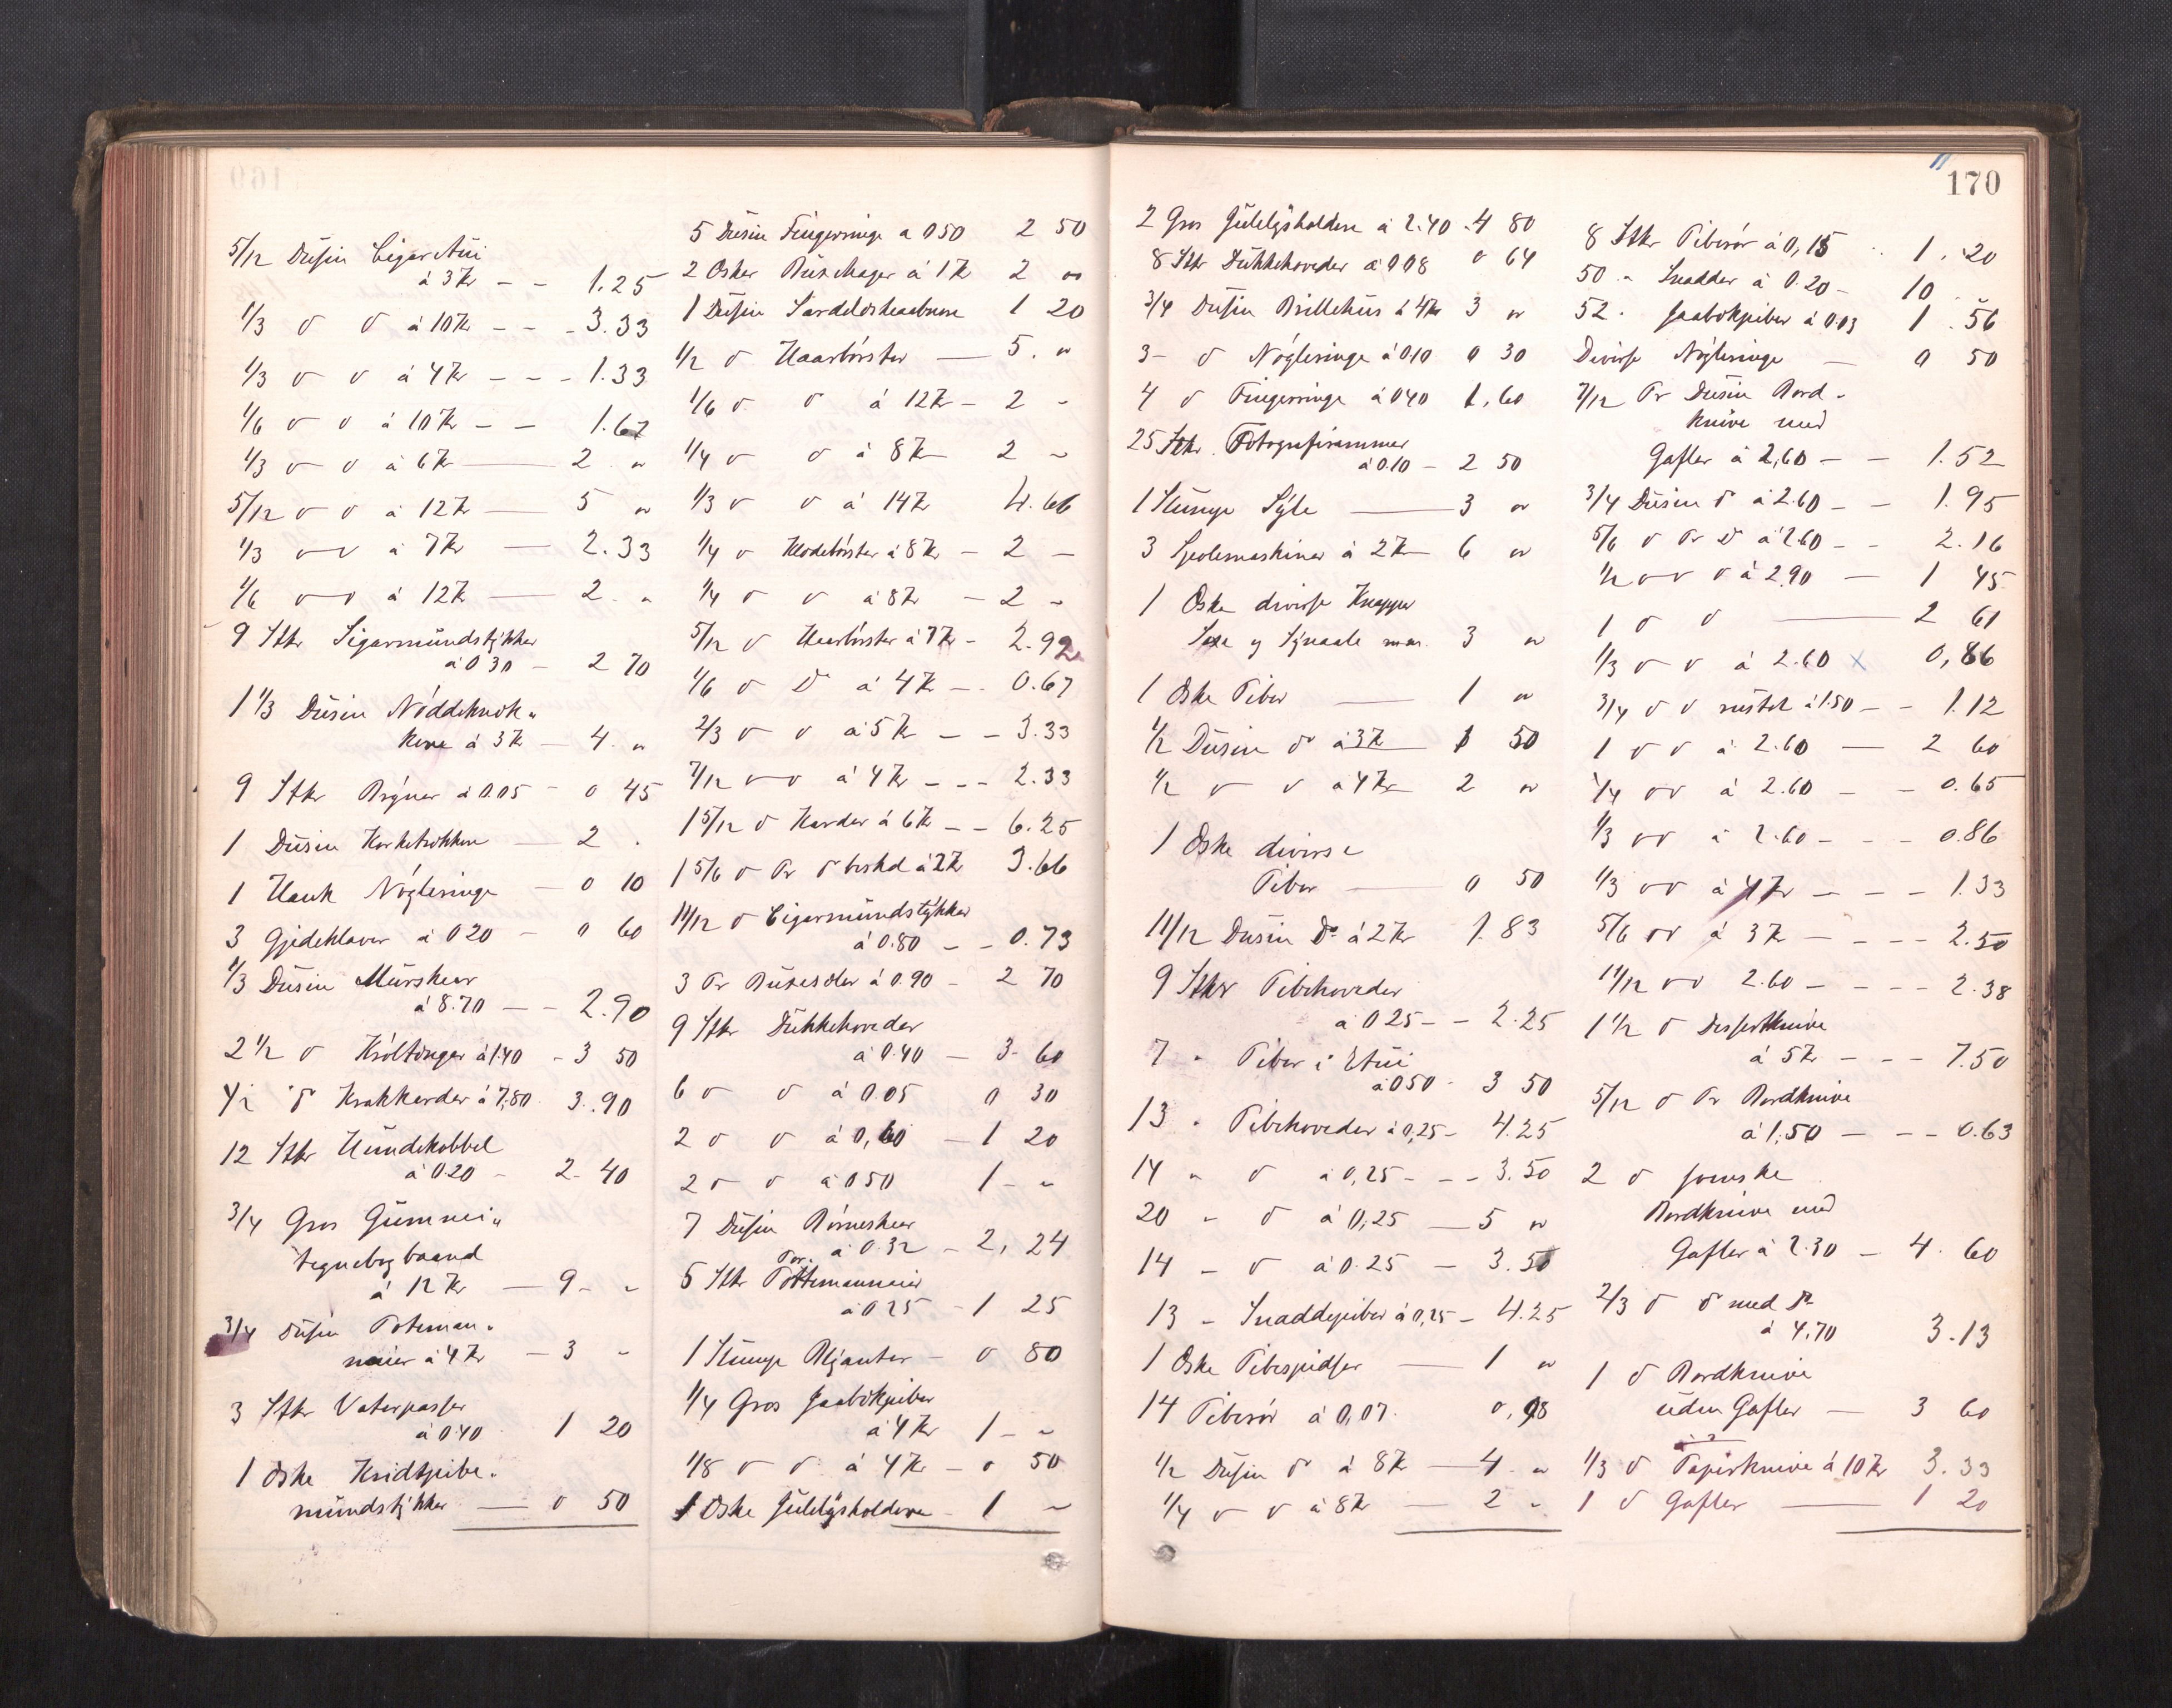 5/12 Dusin Cigar Etui
à 3 Kr - - 1.25
1/3 do do à 10 Kr - - - 3.33
1/3 do do à 4 Kr - - - 1.33
1/6 do do à 10 Kr - - 1.67
1/3 do do à 6 Kr — 2 "
5/12 do do à 12 Kr — 5 "
1/3 do do à 7 Kr — 2.33
1/6 do do à 12 Kr — 2 "
9 Stkr Sigarmundstykker
à 0 30 - 2 70
1 1/3 Dusin Nøddeknæk-
kere à 3 Kr - 4 "
9 Stkr Bryner à 0.05 - 0 45
1 Dusin Korketrækkere — 2 .
1 Hank Nøgleringe — 0 10
3 Gjedeklaver à 0 20 - 0 60
1/3 Dusin Murskeer
à 8.70 — - 2.90
2 1/2 do Krøltænger à 1.40 - 3 50
1/2 do Krakkarder à 7,80 3.90
12 Stkr Hundekobbel
à 0.20 - 2- 40
3/4 Gros Gummi-
tegnebogbaand
à 12 Kr — 9- "
3/4 Dusin Portman-
naier à 4 Kr — 3 "
3 Stkr Vaterpasser
à 0.40 1 20
1 Æske Kridtpibe-
mundstykker — 0 50
5 Dusin Fingerringe a 0 50 2 50
2 Æsker Buxehager à 1 Kr 2 "
1 Dusin Sardelæskeaabnere 1 20
1/2 do Haarbørster — 5. "
1/6 do do à 12 Kr - 2 -
1/4 do do à 8 Kr 2 "
1/3 do do à 14 Kr 4.66
1/4 do Klædebørster à 8 Kr - 2 —
1/4 do do à 8 Kr - 2 "
5/12 do Haarbørster à 7 Kr - 2.92
1/6 do Do à 4 Kr - - 0.67
2/3 do do à 5 Kr - - 3.33
7/12 do do à 4 Kr - - - 2.33
1 5/12 do Karder à 6 Kr - - 6.25
1 5/6 do Pr do beskd à 2 Kr 3.66
11/12 do Cigarmundstykker
à 0.80 - - 0.73
3 Pr Buxeseler à 0.90 - 2 70
9 Stkr Dukkehoveder
à 0.40 — 3- 60
6 do do à 0.05 0 30
2 do do à 0,60 — 1 20
2 do do à 0 50 1 - "
7 Dusin Børneskeer
à 0.32 - 2, 24
5 Stkr Portemannaier
à 0 25 - 1 25
1 Stump Bljanter - 0 80
1/4 Gros Jacobspiber
à 4 Kr 1 - "
1/8 do do à 4 Kr - 0 50
1 Æske Julelysholdere - 1 "
170
2 Gros Julelysholdere à 2.40 . 4 80
8 Stkr Dukkehoveder à 0 08 0 64
3/4 Dusin Brillehus à 4 Kr 3 "
3 - do Nøgleringe à 0.10 0 30
4 do Fingerringe à 0 40 1.60
25 Stkr. Fotografirammer
à 0.10 - 2 50
1 Stump Syle — 3 "
3 Spolemaskiner à 2 Kr 6 "
1 Æske diverse Knapper
3 "
1 Æske Piber — 1 "
1/2 Dusin do à 3 Kr 1 50
1/2 do do à 4 Kr 2 "
1 Æske diverse
Piber — 0 50
11/12 Dusin Do à 2 Kr 1.83
9 Stkr Pibehoveder
à 0 25 - - 2.25
7 " Piber i Etui
à 0 50 - 3 50
13 " Pibehoveder à 0,25 - 4.25
14 " do à 0,25 - - - 3.50
20 " do à 0,25 — 5 "
14 - do à 0.25 — 3.50
13 - Snaddepiber à 0,25 - 4.25
1 Æske Pibespidser — 1 "
14 Piberør à 0,07. 0,98
1/2 Dusin do à 8 Kr — 4 "
1/4 do do à 8 Kr — 2 "
8 Stkr Piberør à 0,15 . 1.20
50 " Snadder à 0.20 - 10
52 . Jacobspiber à 0.03 1.56
Diverse Nøgleringe — 0 50
7/12 Pr Dusin Bord-
knive med
Gafler à 2,60 - - 1.52
3/4 Dusin do à 2.60 - - 1.95
5/6 do Pr Do à 2.60 - - 2.16
1/2 do do do à 2.90 — 1 45
1 do do — 2 61
1/3 do do à 2.60 x 0,86
3/4 do do rustet à 1.50 - - 1.12
1 do do à 2.60 — 2 60
1/4 do do à 2.60 - - 0.65
1/3 do do à 2.60 - - - 0.86
1/3 do do à 4 Kr - - - 1.33
5/6 do do à 3 Kr - - - - 2.50
11/12 do do 2.60 - - - - 2.38
1 1/2 do Dessertknive
à 5 Kr - - - 7.50
5/12 do Pr Bordknive
à 1,50 - - - 0.63
2 do Jernske
Bordknive med
Gafler à 2.30 - 4. 60
2/3 do do med do
à 4,70 3.13
1 do Bordknive
uden Gafler — 3 60
1/3 do Papirknive à 10 Kr 3.33
1 do Gafler — 1 20